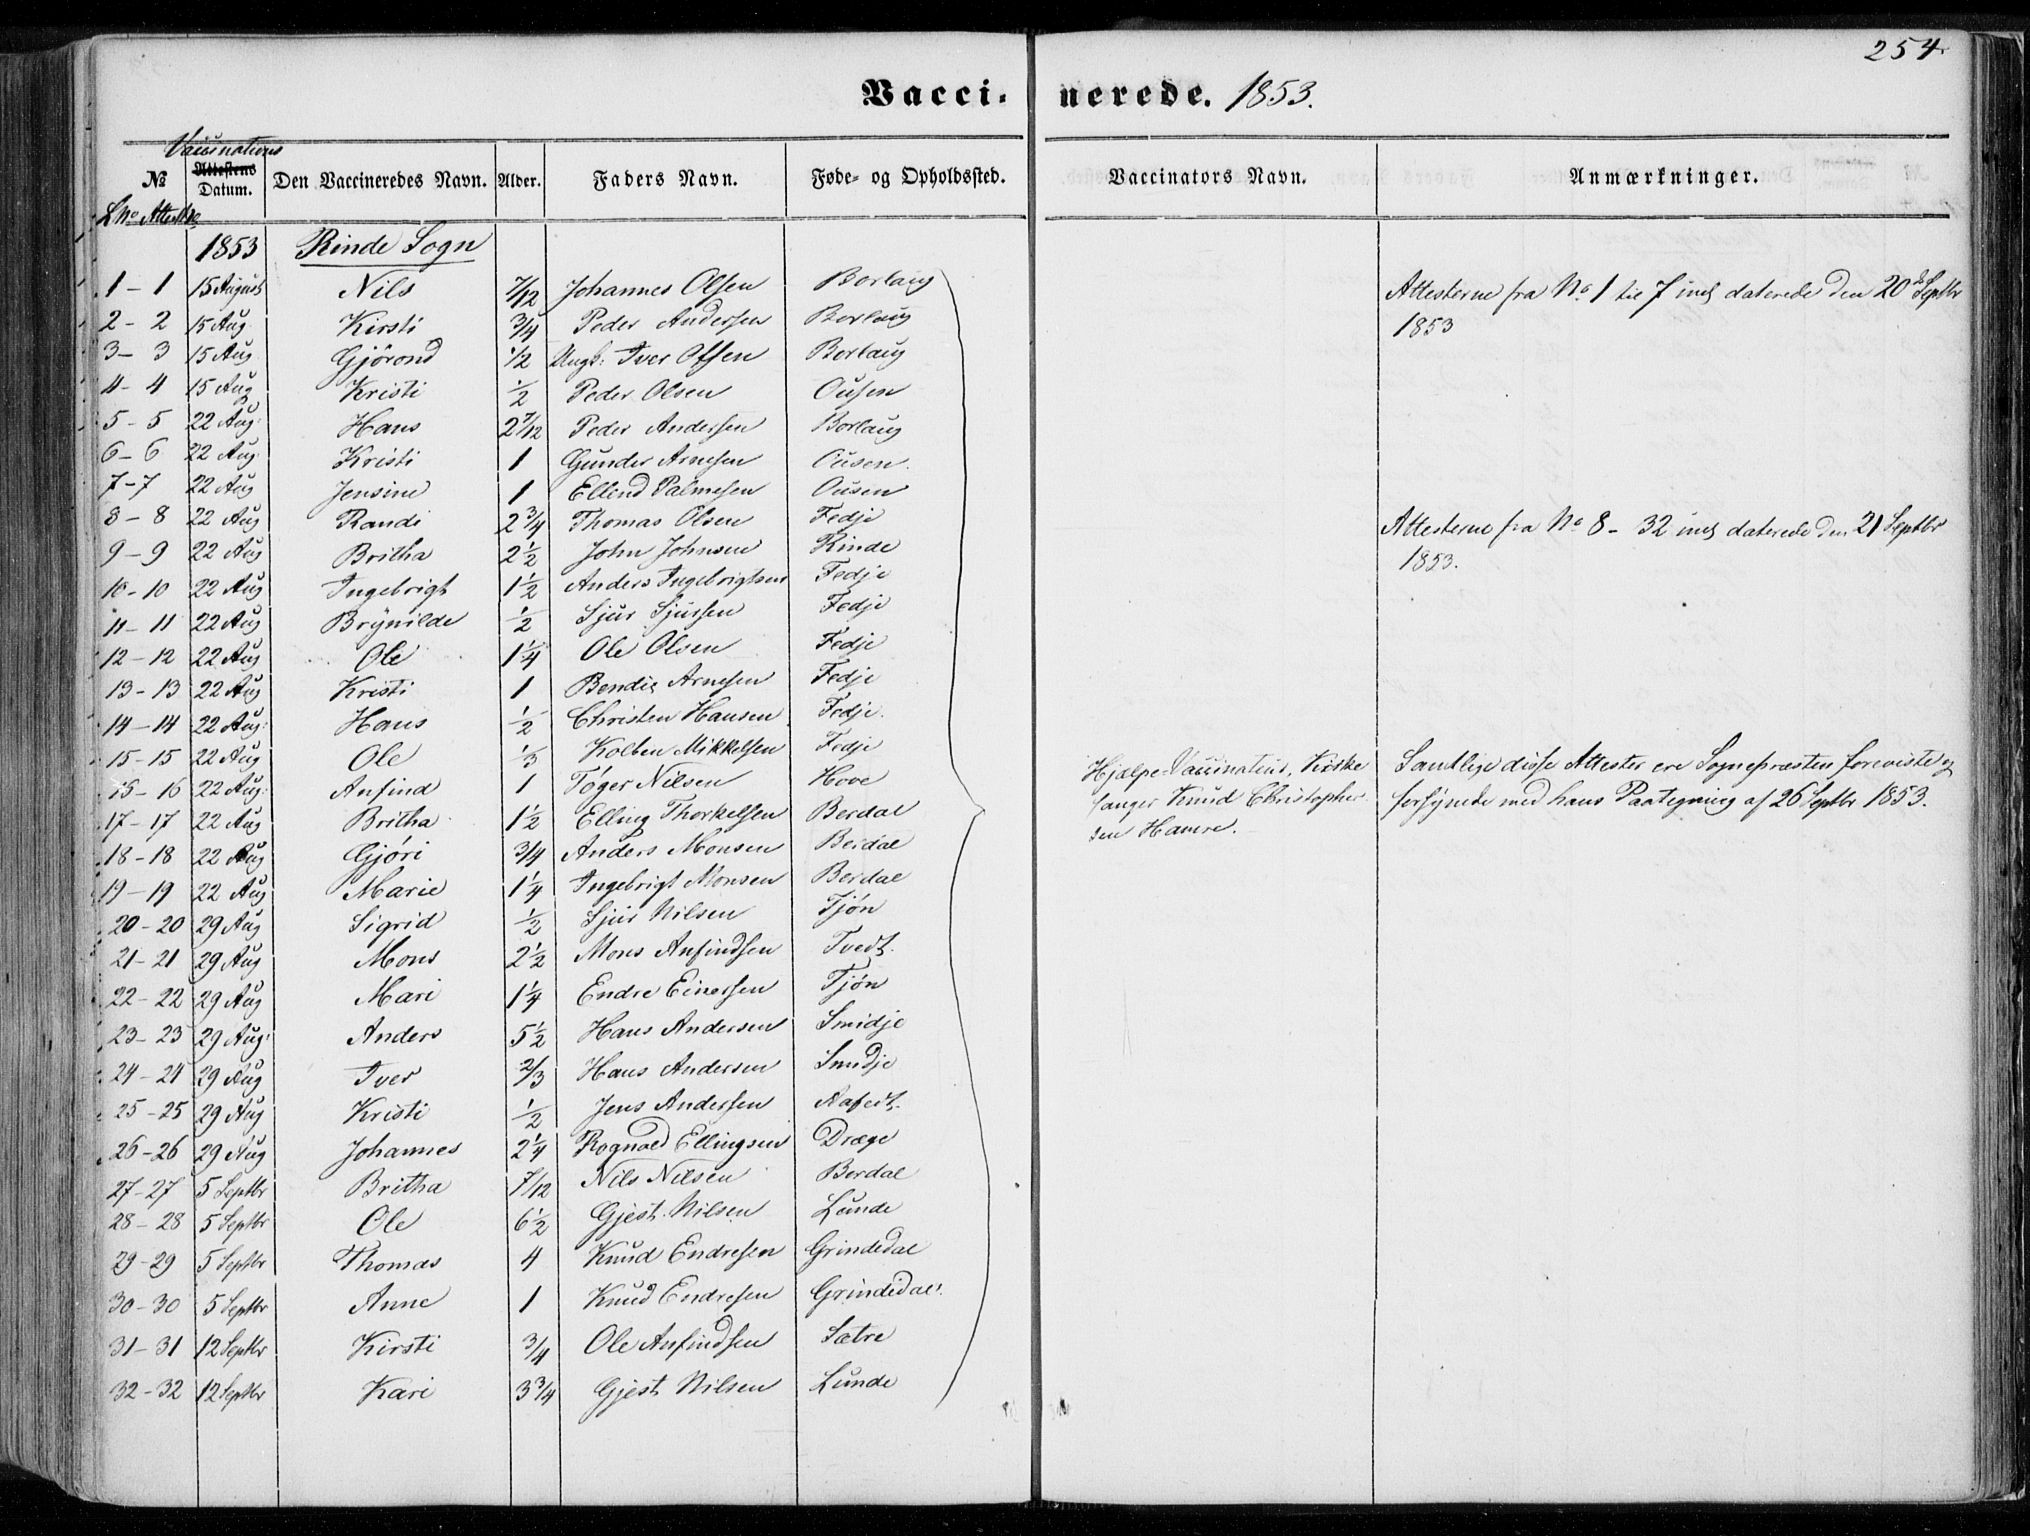 254
Vaccinerede. 1853.
Vaccinations
№ Attestens Datum. Den Vaccineredes Navn. Alder. Faders Navn. Føde- og Opholdssted. Vaccinators Navn. Anmærkninger.
L No Attest No
1853 Rinde Sogn
1 - 1 15 August Nils 7/12 Johannes Olsen Borlaug
2 - 2 15 Aug. Kirsti 3/4 Peder Andersen Borlaug
3 - 3 15 Aug. Gjörond 1/2 Ungk: Iver Olsen Borlaug
4 - 4 15 Aug Kristi 1/2 Peder Olsen Ousen
5 - 5 22 Aug. Hans 2 7/12 Peder Andersen Borlaug
6 - 6 22 Aug. Kristi 1 Gunder Arnesen Ousen.
7 - 7 22 Aug Jensine 1 Ellend Palmesen Ousen
8 - 8 22 Aug Randi 2 3/4 Thomas Olsen Fedje
9 - 9 22 Aug Britha 2 1/2 John Johnsen Rinde
10 - 10 22 Aug Ingebrigt 1 1/2 Anders Ingebrigtsen Fedje
11 - 11 22 Aug Brÿnilde 1/2 Sjur Sjursen Fedje
12 - 12 22 Aug Ole 1 1/4 Ole Olsen Fedje
13 - 13 22 Aug Kristi 1 Bendix Arnesen Fedje
14 - 14 22 Aug: Hans 1/2 Christen Hansen Fedje.
15 - 15 22 Aug Ole 1/3 Kolben Mikkelsen Fedje
16 - 16 22 Aug: Anfind 1 Tøger Nilsen Hove
17 - 17 22 Aug Britha 1 1/2 Elling Thorkelsen Berdal
18 - 18 22 Aug Gjøri 3/4 Anders Monsen Berdal
19 - 19 22 Aug Marie 1 1/4 Ingebrigt Monsen Berdal
20 - 20 29 Aug Sigrid 1/2 Sjur Nilsen Tjøn
21 - 21 29 Aug Mons 2 1/2 Mons Anfindsen Tvedt.
22 - 22 29 Aug Mari 1 1/4 Endre Einersen Tjøn
23 - 23 29 Aug: Anders 5 1/2 Hans Andersen Smidje
24 - 24 29 Aug Iver 2/3 Hans Andersen Smidje
25 - 25 29 Aug Kristi 1/2 Jens Andersen Aafedt.
26 - 26 29 Aug Johannes 2 1/4 Rognald Ellingsen Dræge
27 - 27 5 Septbr Britha 7/12 Nils Nilsen Berdal
28 - 28 5 Septbr Ole 6 1/2 Gjest Nilsen Lunde
29 - 29 5 Septbr Thomas 4 Knud Endresen Grindedal
30 - 30 5 Septbr Anne 1 Knud Endresen Grindedal.
31 - 31 12 Septbr Kirsti 3/4 Ole Anfindsen Sætre
32 - 32 12 Septbr Kari 3 3/4 Gjest Nilsen Lunde
Hjælpe-Vaccinateur, Kirke
sanger Knud Christopher
sen Hamre.
Attesterne fra No 1 til 7 incl daterede den 20de Septbr
1853
Attesterne fra No 8 - 32 incl daterede den 21 Septbr
1853.
Samtlige disse Attester ere Sognepræsten foreviste og
forsynede med hans Paategning af 26 Septbr 1853.